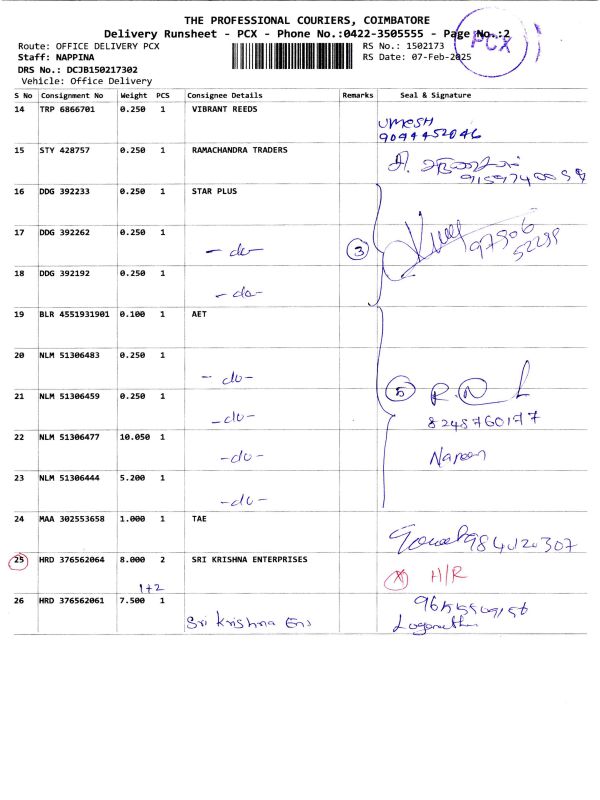 THE PROFESSIONAL COURIERS, COIMBATORE
Delivery Runsheet - PCX - Phone No.:0422-3505555 - Page No.:2
PCX
Route: OFFICE DELIVERY PCX RS No.: 1502173
Staff: NAPPINA RS Date: 07-Feb-2025
DRS No.: DCJB150217302
Vehicle: Office Delivery
S No Consignment No Weight PCS Consignee Details Remarks Seal & Signature
14 TRP 6866701 0.250 1 VIBRANT REEDS
UMESH
9044452046
15 STY 428757 0.250 1 RAMACHANDRA TRADERS
16 DDG 392233 0.250 1 STAR PLUS
17 DDG 392262 0.250 1 - do - 3
97906
52299
18 DDG 392192 0.250 1 - do -
19 BLR 4551931901 0.100 1 AET
20 NLM 51306483 0.250 1 - do -
21 NLM 51306459 0.250 1 - do - 5
8248760177
22 NLM 51306477 10.050 1 - do -
23 NLM 51306444 5.200 1 - do -
24 MAA 302553658 1.000 1 TAE
25 HRD 376562064 8.000 2 SRI KRISHNA ENTERPRISES
X H/R
1+2
26 HRD 376562061 7.500 1 Sri Krishna Ens